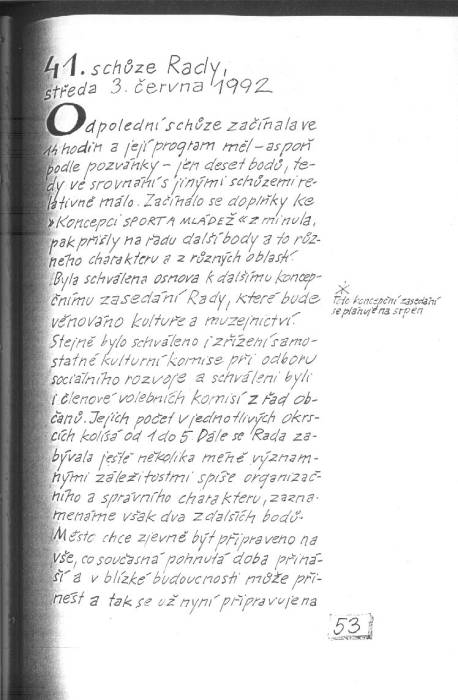 41. schůze Rady,
středa 3. června 1992
Odpolední schůze začínala ve
14 hodin a její program měl – aspoň
podle pozvánky – jen deset bodů, te-
dy ve srovnání s jinými schůzemi re-
lativně málo. Začínalo se doplňky ke
»Koncepci SPORT A MLÁDEŽ« z minula,
pak přišly na řadu další body a to růz-
ného charakteru a z různých oblastí
Byla schválena osnova k dalšímu koncep-
čnímu zasedání Rady, které bude
věnováno kultuře a muzejnictví.
Stejně bylo schváleno i zřízení samo-
statné kulturní komise při odboru
sociálního rozvoje a schváleni byli
i členové volebních komisí z řad ob-
čanů. Jejich počet v jednotlivých okrs-
cích kolísá od 1 do 5. Dále se Rada za-
bývala ještě několika méně význam-
nými záležitostmi spíše organizač-
ního a správního charakteru, zazna-
menáme však dva z dalších bodů.
Město chce zjevně být připraveno na
vše, co současná pohnutá doba přiná-
ší a v blízké budoucnosti může při-
nést a tak se už nyní připravuje na
* Toto koncepční zasedání
se plánuje na srpen
53